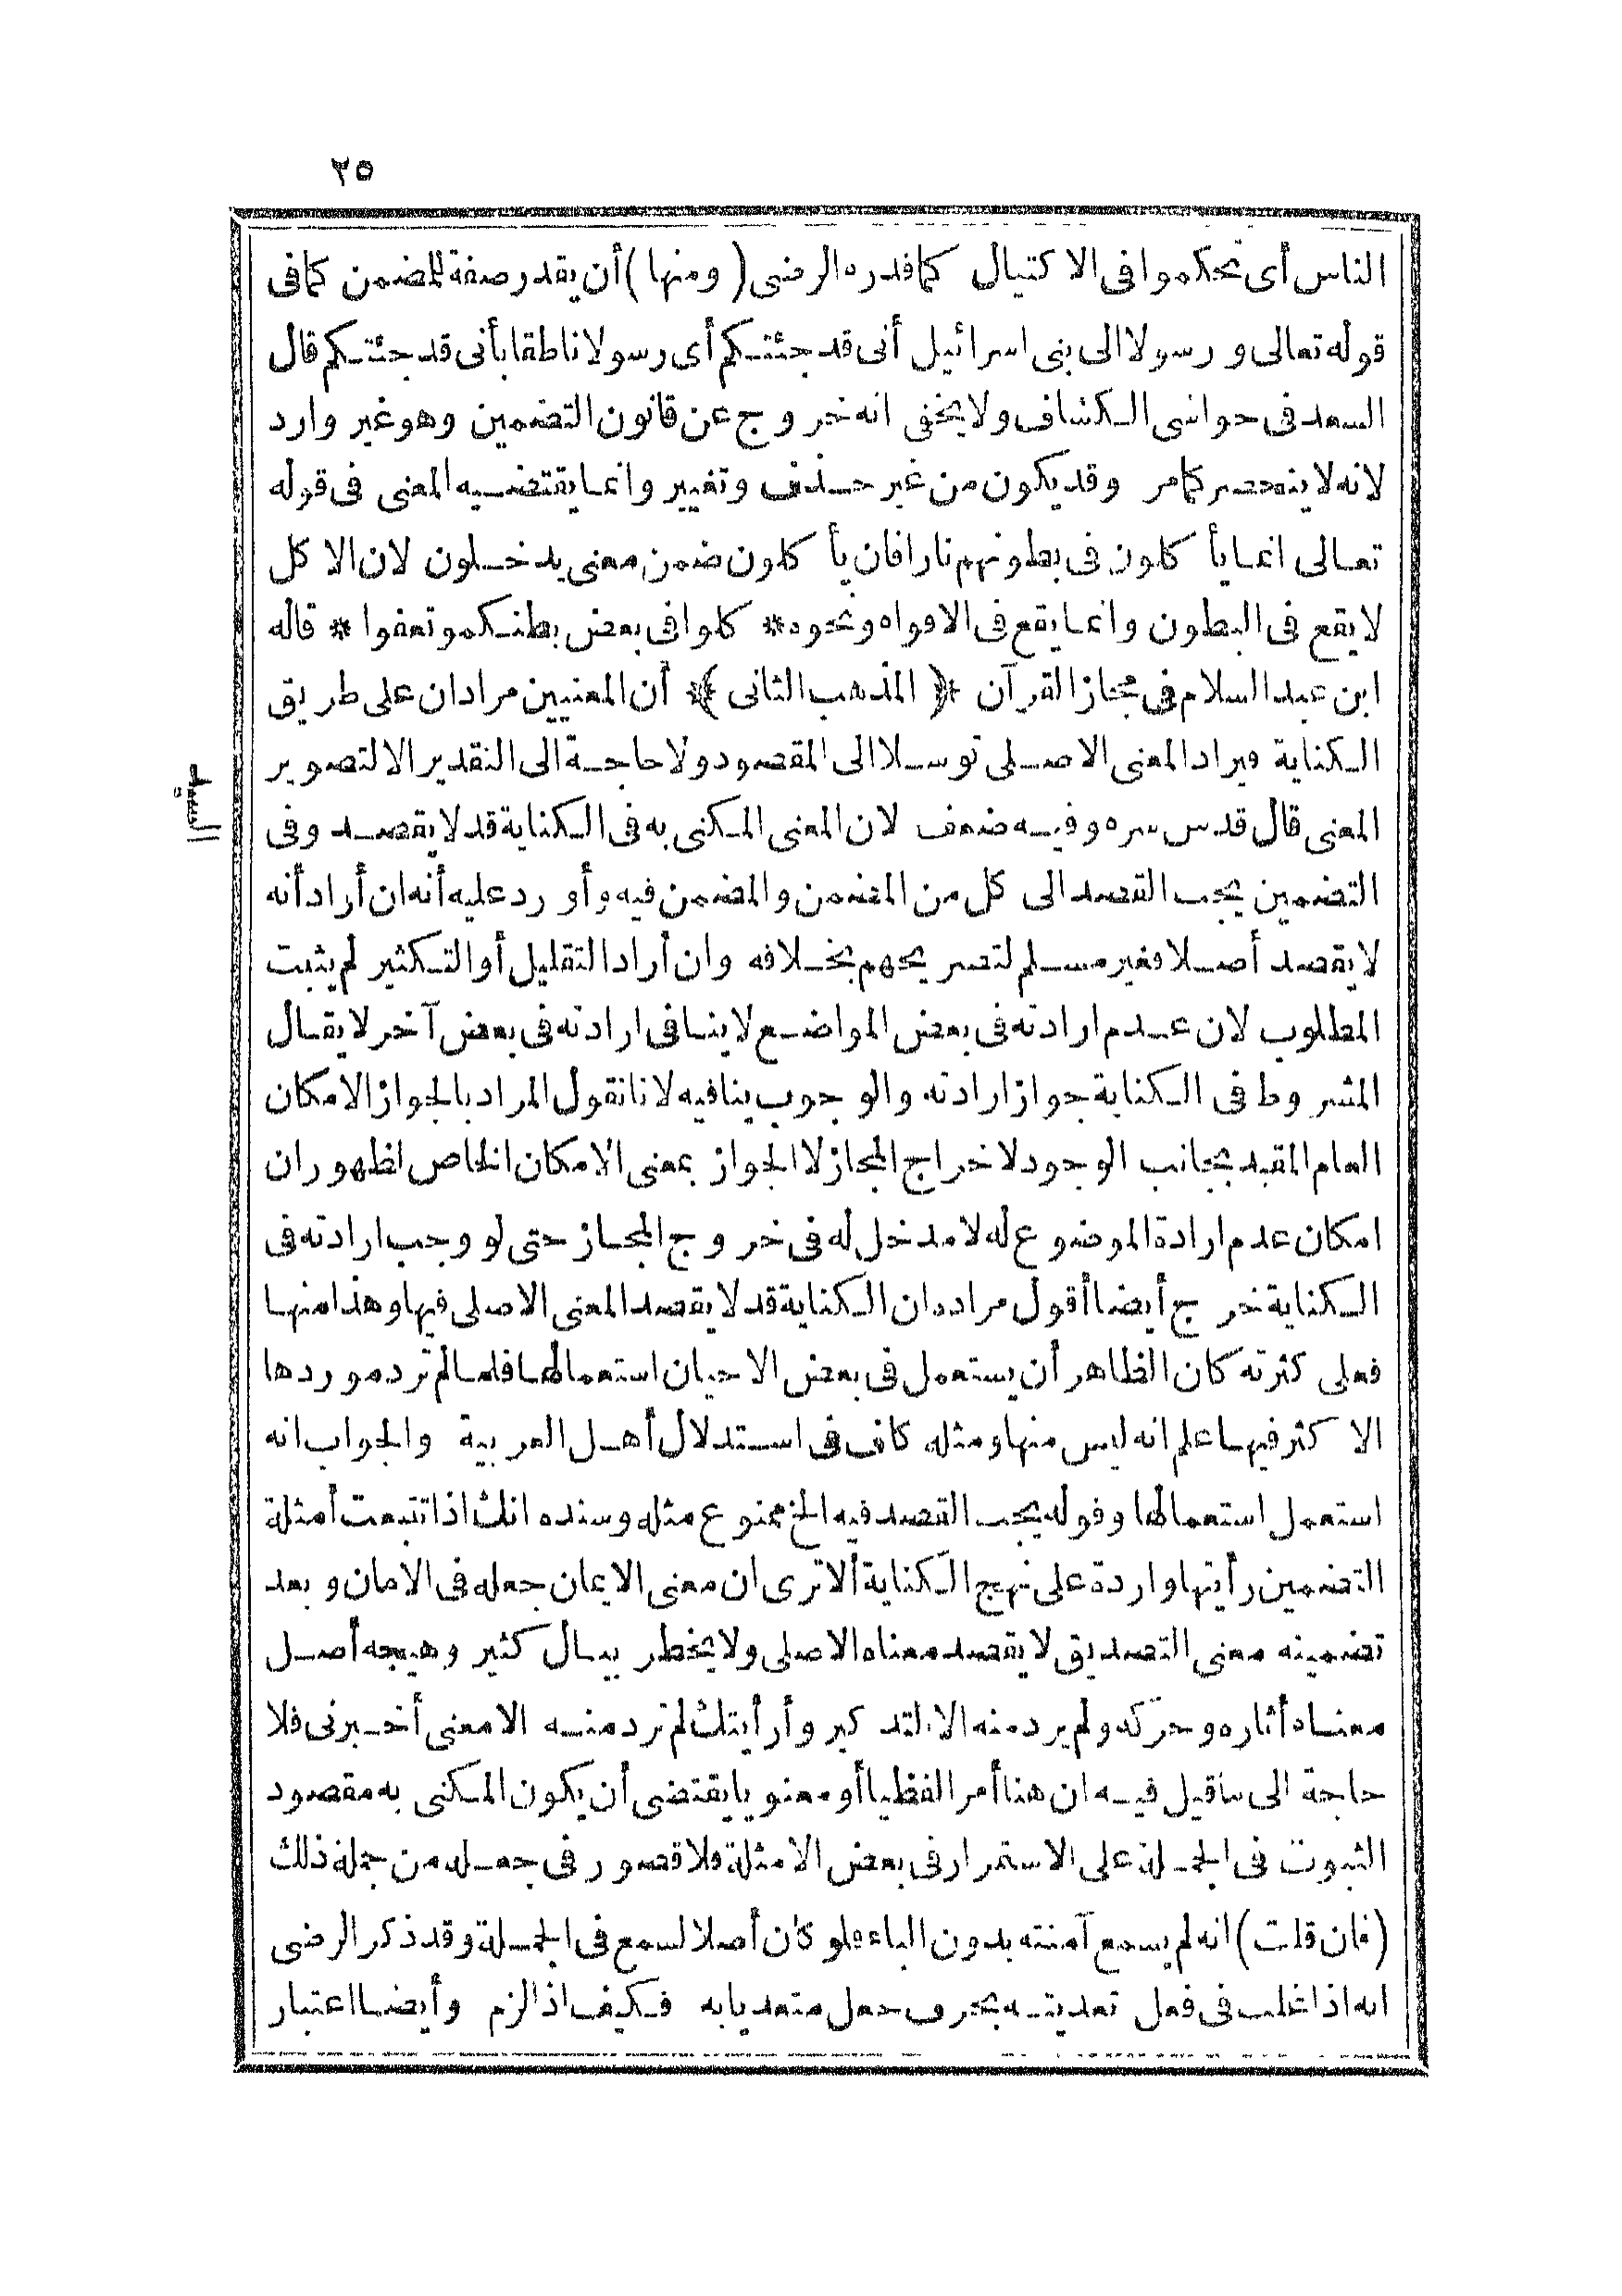 ٢٥
الناس أى تحكموا فى الاكتيال كما قدره الرضى (ومنها) أن يقدر صفة للمضمن كما فى
قوله تعالى ورسولا الى بنى اسرائيل أنى قد جئتكم أى رسولا ناطقا بأنى قد جئتكم قال
السعد فى حواشى الكشاف ولا يخفى انه خروج عن قانون التضمين وهو غير وارد
لانه لا ينحصر كما مر وقد يكون من غير حذف وتغيير وانما يقتضيه المعنى فى قوله
تعالى انما يأكلون فى بطونهم نارا فان يأكلون ضمن معنى يدخلون لان الاكل
لا يقع فى البطون وانما يقع فى الافواه ونحوه * كلوا فى بعض بطنكمو تعفوا * قاله
ابن عبد السلام فى مجاز القرآن * ﴿ المذهب الثانى ﴾ * أن المعنيين مرادان على طريق
الكناية ويراد المعنى الاصلى توسلا الى المقصود ولا حاجة الى التقدير الا لتصوير
المعنى قال قدس سره وفيه ضعف لان المعنى المكنى به فى الكناية قد لا يقصد وفى
السيد
التضمين يجب القصد الى كل من المضمن والمضمن فيه وأورد عليه أنه ان أراد أنه
لا يقصد أصلا فغير مسلم لتصريحهم بخلافه وان أراد التقليل أو التكثير لم يثبت
المطلوب لان عدم ارادته فى بعض المواضع لا ينافى ارادته فى بعض آخر لا يقال
المشروط فى الكناية جواز ارادته والوجوب ينافيه لانا نقول المراد بالجواز الامكان
العام المقيد بجانب الوجود لاخراج المجاز لا الجواز بمعنى الامكان الخاص لظهور ان
امكان عدم ارادة الموضوع له لا مدخل له فى خروج المجاز حتى لو وجب ارادته فى
الكناية خرج أيضا أقول مراده ان الكناية قد لا يقصد المعنى الاصلى فيها وهذا منها
فعلى كثرته كان الظاهر أن يستعمل فى بعض الاحيان استعمالها فلما لم ترد موردها
الاكثر فيها علم انه ليس منها ومثله كاف فى استدلال أهل العربية والجواب انه
استعمل استعمالها وقوله يجب القصد فيه الخ ممنوع مثله وسنده انك اذا تتبعت أمثلة
التضمين رأيتها واردة على نهج الكناية ألا ترى ان معنى الايمان جعله فى الامان وبعد
تضمينه معنى التصديق لا يقصد معناه الاصلى ولا يخطر ببال كثير وهيجه أصل
معناه أثاره وحركه ولم يرد منه الا التذكير وأرأيتك لم ترد منه الا معنى أخبرنى فلا
حاجة الى ما قيل فيه ان هنا أمرا لفظيا أو معنويا يقتضى أن يكون المكنى به مقصود
الثبوت فى الجملة على الاستمرار فى بعض الامثلة فلا قصور فى جعله من جملة ذلك
(فان قلت) انه لم يسمع آمنته بدون الباء فلو كان أصلا لسمع فى الجملة وقد ذكر الرضى
انه اذا غلب فى فعل تعديته بحرف جعل متعديا به فكيف اذا لزم وأيضا اعتبار